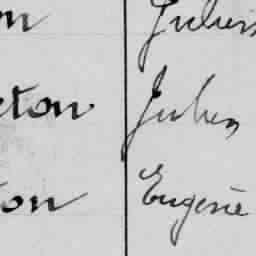 on Julien
eton Julien
on Eugénie